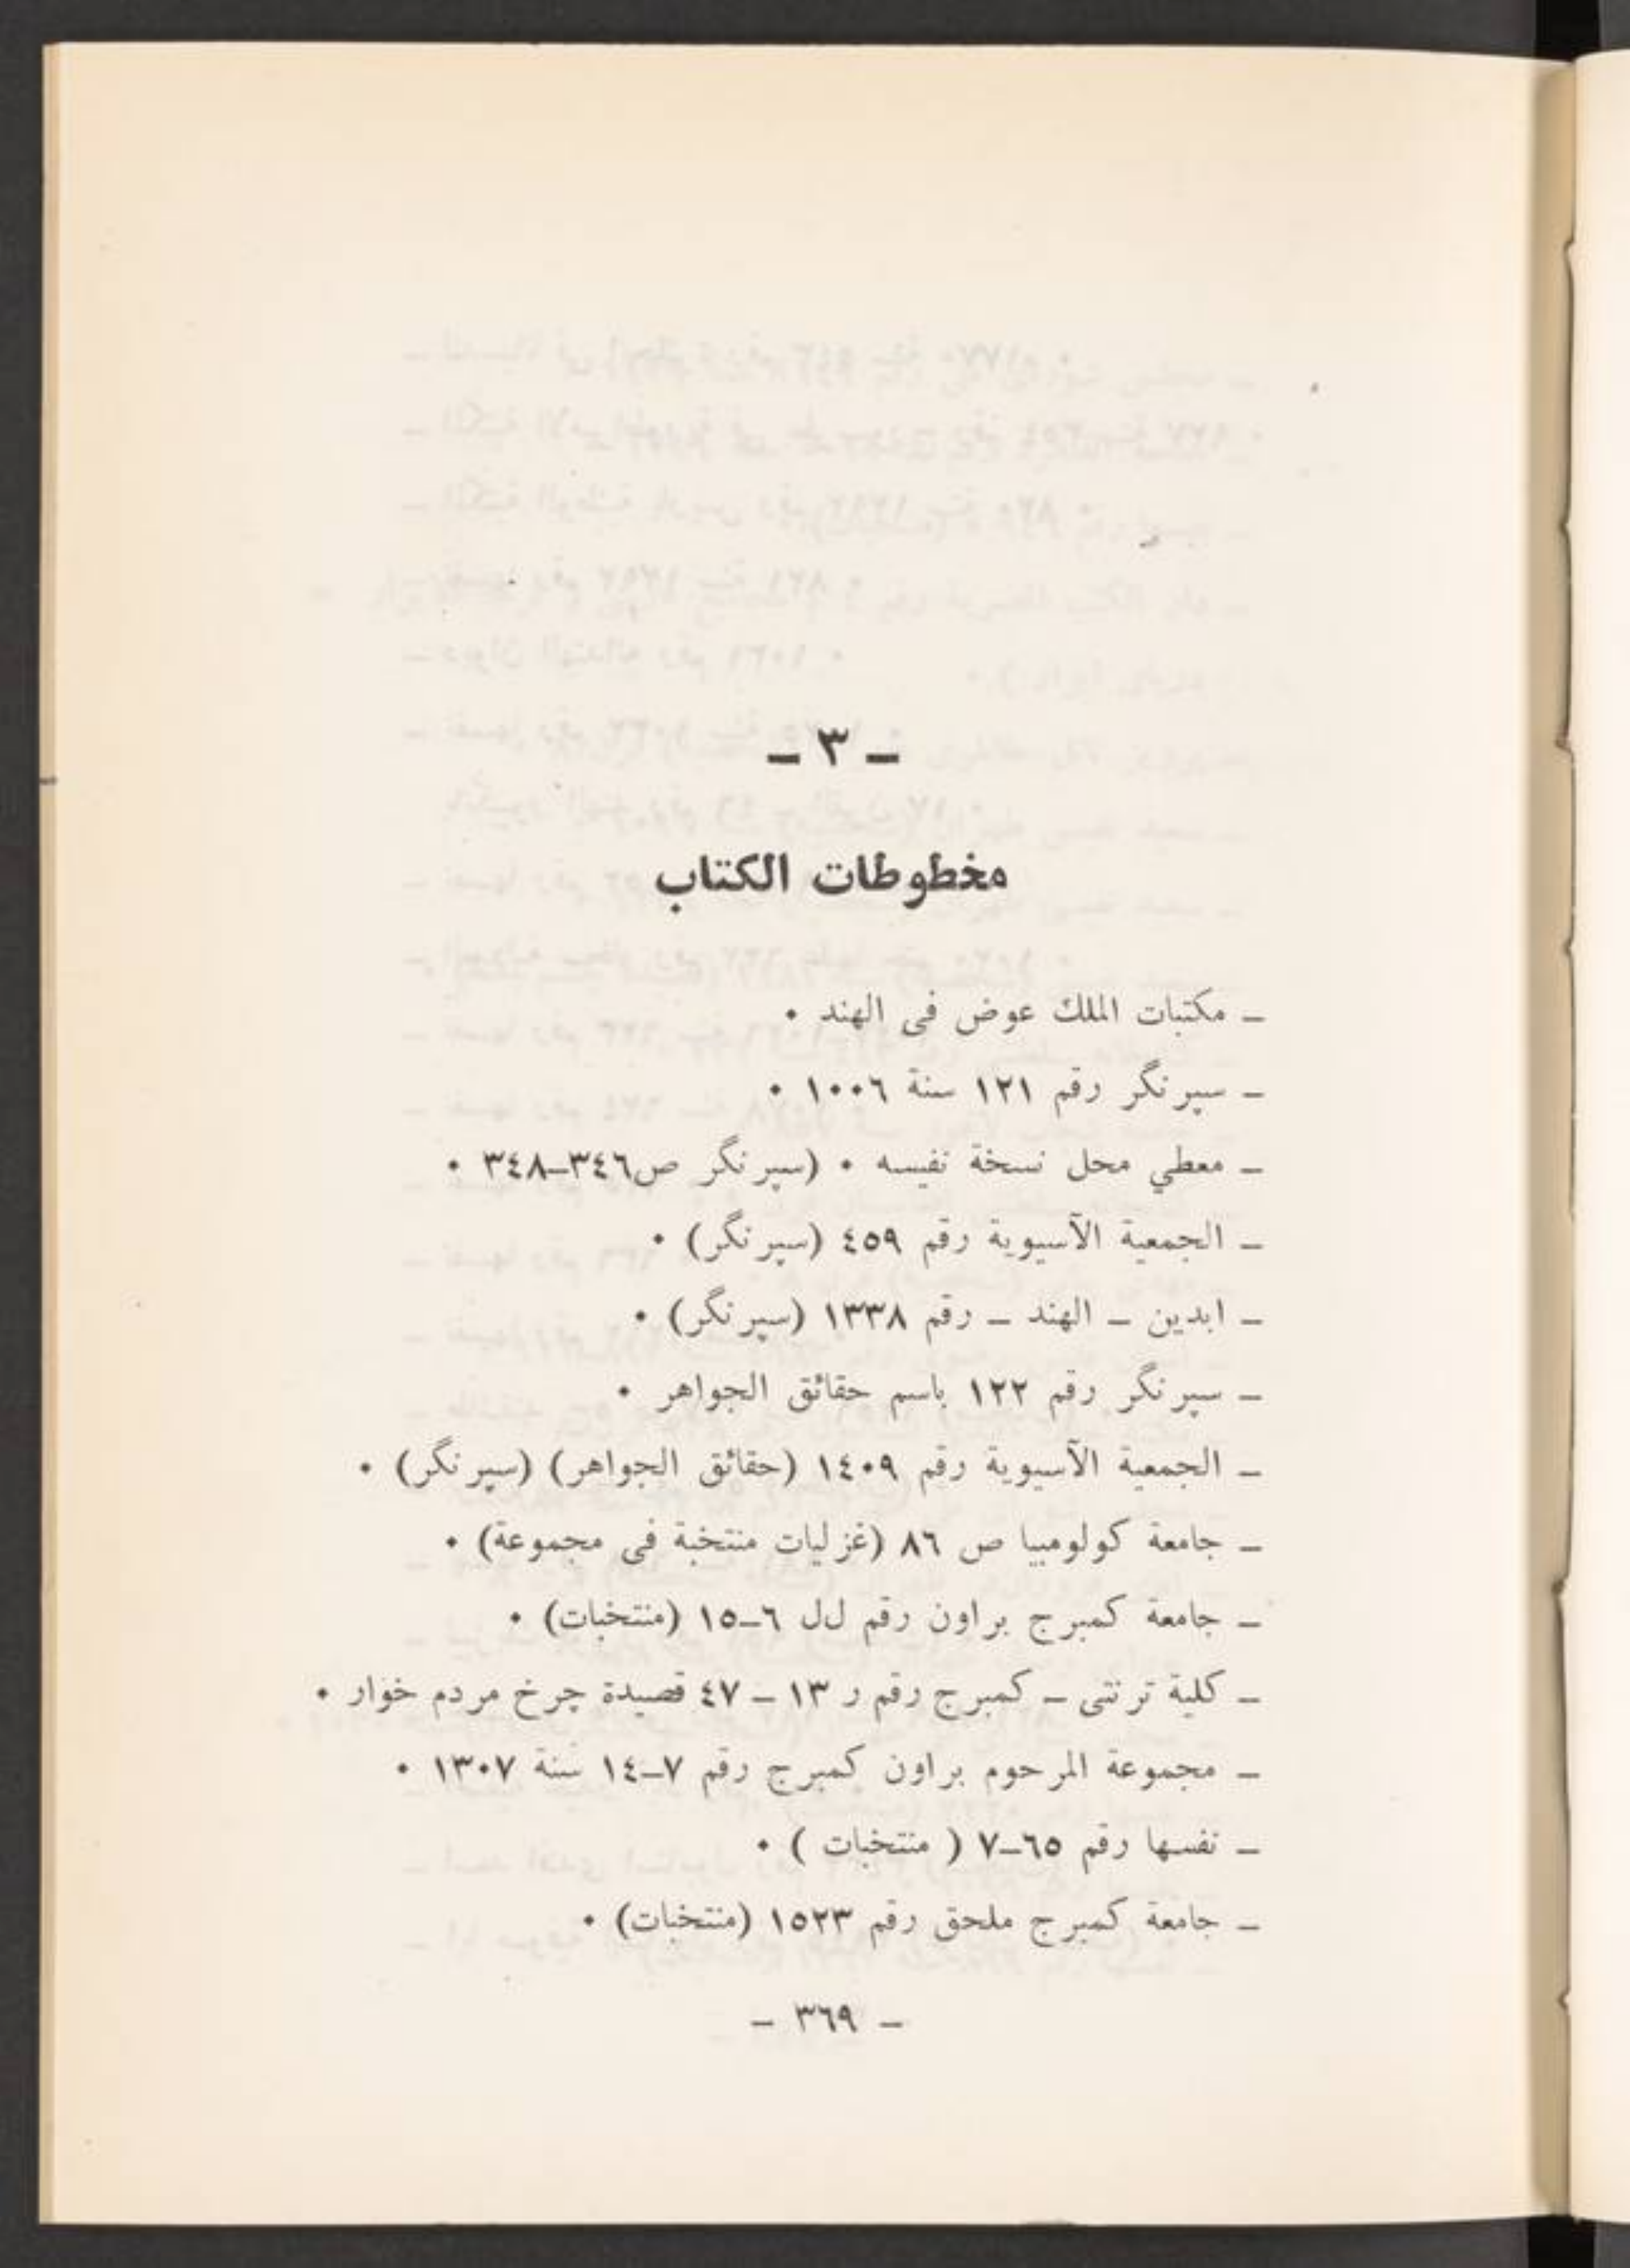 ـ ٣ ـ
مخطوطات الكتاب
ـ مكتبات الملك عوض فى الهند ٠
ـ سپرنگر رقم ١٢١ سنة ١٠٠٦ ٠
ـ معطي محل نسخة نفيسه ٠ (سپرنگر ص٣٤٦ـ٣٤٨ ٠
ـ الجمعية الآسيوية رقم ٤٥٩ (سپرنگر) ٠
ـ ابدين ـ الهند ـ رقم ١٣٣٨ (سپرنگر) ٠
ـ سپرنگر رقم ١٢٢ باسم حقائق الجواهر ٠
ـ الجمعية الآسيوية رقم ١٤٠٩ (حقائق الجواهر) (سپرنگر) ٠
ـ جامعة كولومبيا ص ٨٦ (غزليات منتخبة فى مجموعة) ٠
ـ جامعة كمبرج براون رقم لل ٦ـ١٥ (منتخبات) ٠
ـ كلية ترنتى ـ كمبرج رقم ر ١٣ ـ ٤٧ قصيدة چرخ مردم خوار ٠
ـ مجموعة المرحوم براون كمبرج رقم ٧ـ١٤ سنة ١٣٠٧ ٠
ـ نفسها رقم ٦٥ـ٧ ( منتخبات ) ٠
ـ جامعة كمبرج ملحق رقم ١٥٢٣ (منتخبات) ٠
ـ ٣٦٩ ـ